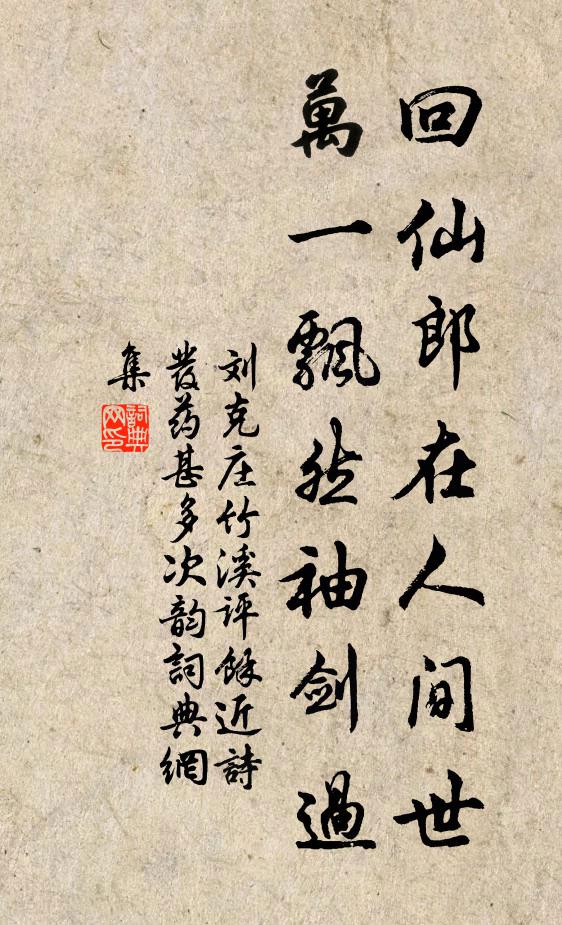 回仙郎在人间世
萬一飄然袖剑過
刘克庄竹溪评馀近詩
發药甚多次韵詞典網
集
詞典网印